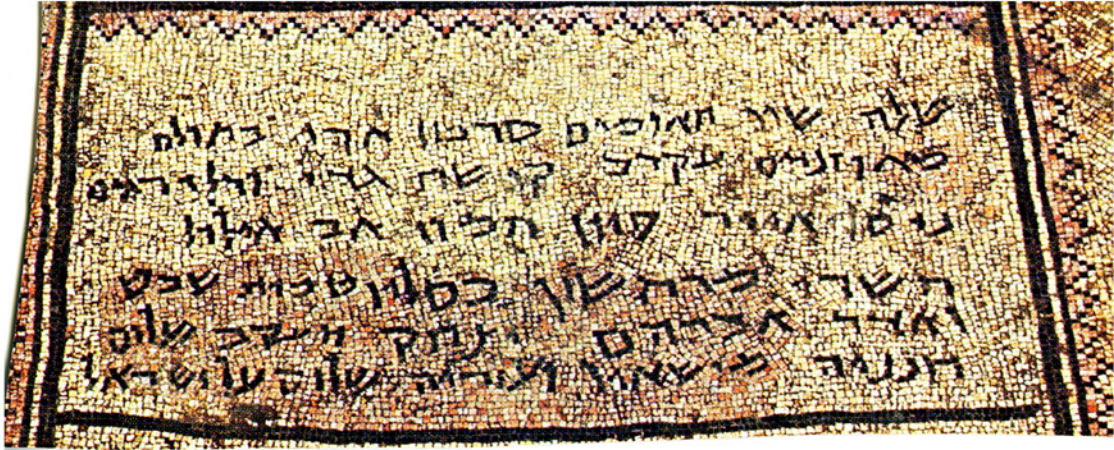 טלה שור תאומים סרטן ארי בתולה
מאוזנים עקרב קשת גדי ודלי דגים
ניסן אייר סיון תמוז אב אילול
תשרי מרחשון כסליו טבית שבט
ואדר אברהם יצחק יעקב שלום
חנניה מישאיל ועזריה שלום על ישראל